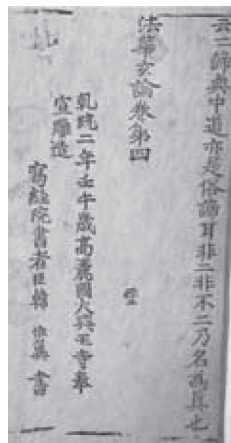 云二諦與中道亦是俗諦耳非二非不二乃名為真也
法華玄論卷第四
乾統二年壬午歲高麗國大興王寺奉
宣雕造
寫經院書者臣韓 書